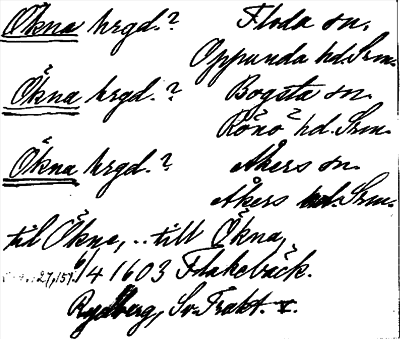 Ökna hrgd.? Floda sn.
Oppunda hd. Srm.
Ökna hrgd.? Bogsta sn.
Rönö hd. Srm.
Ökna hrgd.? Åkers sn.
Åkers hd. Srm.
til Ökne, .. till Ökna,
27, 157. 6/4 1603 Flakebäck.
Rydberg, Sv. Trakt. V.